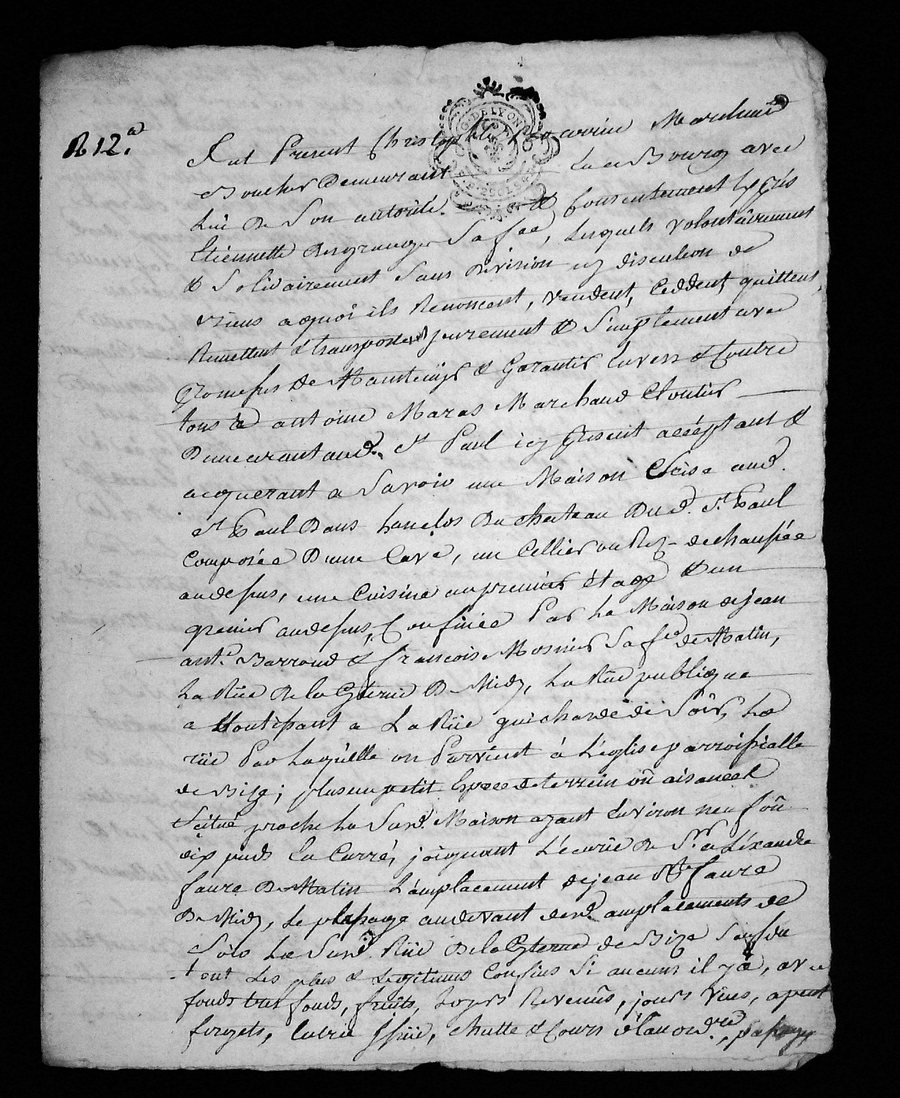 R 12.a
G. DE LYON
Fut Present Christophe Marchand
Boucher Demeurant Bourg avec
Lui De Son autorité & Consentement
Etiennette Desgranges Sa fee, Lesquels volontairement
& Solidairement Sans Division ny discution de
viens aquoi ils Renoncent, vendent, Ceddent, quittent,
Remettent & transportent purement & Simplement avec
promesses de Maintenir & Garantir Envers & Contre
tous à antoine Maras Marchand Cloutier
Demeurant aud. St Paul icy present acceptant &
acquerant a Savoir une Maison Scise aud.
St Paul Dans Lenclos Du chateau Dud. St Paul
Composée Dune Cave, un Cellier au Rez-dechaussée
audessus, une Cuisine au premier étage & un
grenier audessus, Confinée Par La Maison dejean
ant. Barraud & francois Mosnier Sa fe de Matin,
La Rüe De la De Midy, La Rüe publique
a La Rüe de Soir, La
rüe Par Laquelle on Parvient à L'eglise parroissialle
de Bize; plus un petit Espace de terrein où aisances
Scitué proche La Susd. Maison ayant Environ neuf oû
dix pieds En Carré, joignant L'ecurie de Sr. alexandre
faure De Matin L'amplacement dejean faure
De Midy, Le passage audevant desd. amplacements de
Soir La Susd. Rüe De la de Bize Sauf du
tout Les plus & Legitimes Confins Si aucuns il y a, avec
fonds tres fonds, fruits, Revenûs, jours vües, apent
forgets, Entrée Issüe, chutte & Cours d'eau ord.re,